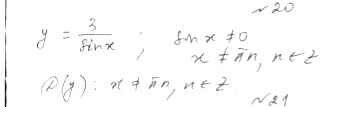 ~20
y = 3/sinx ; sin x ≠ 0
x ≠ πn, n ∈ Z
D(y): x ≠ πn, n ∈ Z
~21